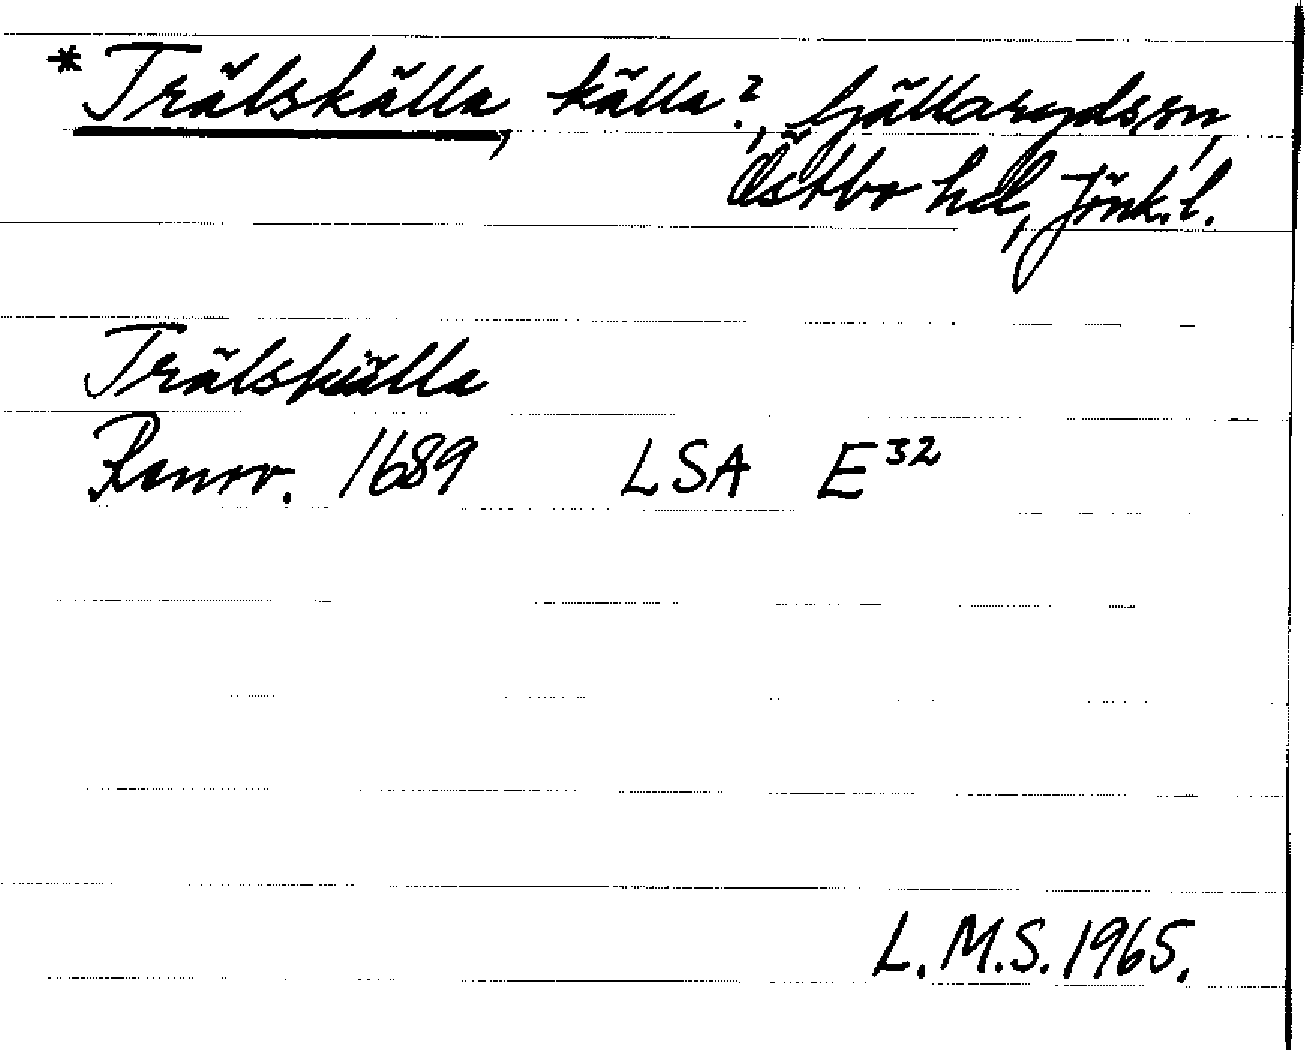 *Trälskälla, källa?, Gällaryds sn,
Östbo hd, Jönk. l.
Trälskiälla
Rannr. 1689 LSA E32
L.M.S. 1965.